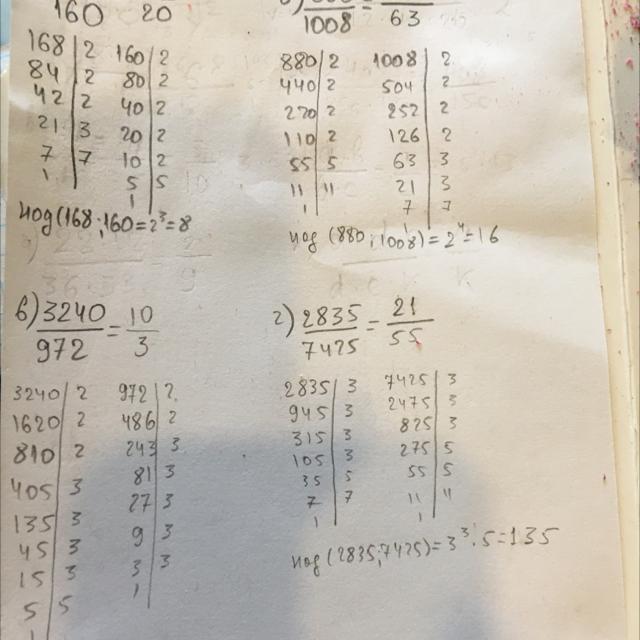 160 20
1008 63
168 | 2 160 | 2
84 | 2 80 | 2
42 | 2 40 | 2
21 | 3 20 | 2
7 | 7 10 | 2
1 | 5 | 5
1
нод(168;160=2³=8
880 | 2 1008 | 2
440 | 2 504 | 2
220 | 2 252 | 2
110 | 2 126 | 2
55 | 5 63 | 3
11 | 11 21 | 3
1 | 7 | 7
нод(880;1008)=2⁴=16
в) 3240/972 = 10/3
3240 | 2 972 | 2
1620 | 2 486 | 2
810 | 2 243 | 3
405 | 3 81 | 3
135 | 3 27 | 3
45 | 3 9 | 3
15 | 3 3 | 3
5 | 5 1
г) 2835/7425 = 21/55
2835 | 3 7425 | 3
945 | 3 2475 | 3
315 | 3 825 | 3
105 | 3 275 | 5
35 | 5 55 | 5
7 | 7 11 | 11
1 | 1
нод(2835;7425)=3³·5=135